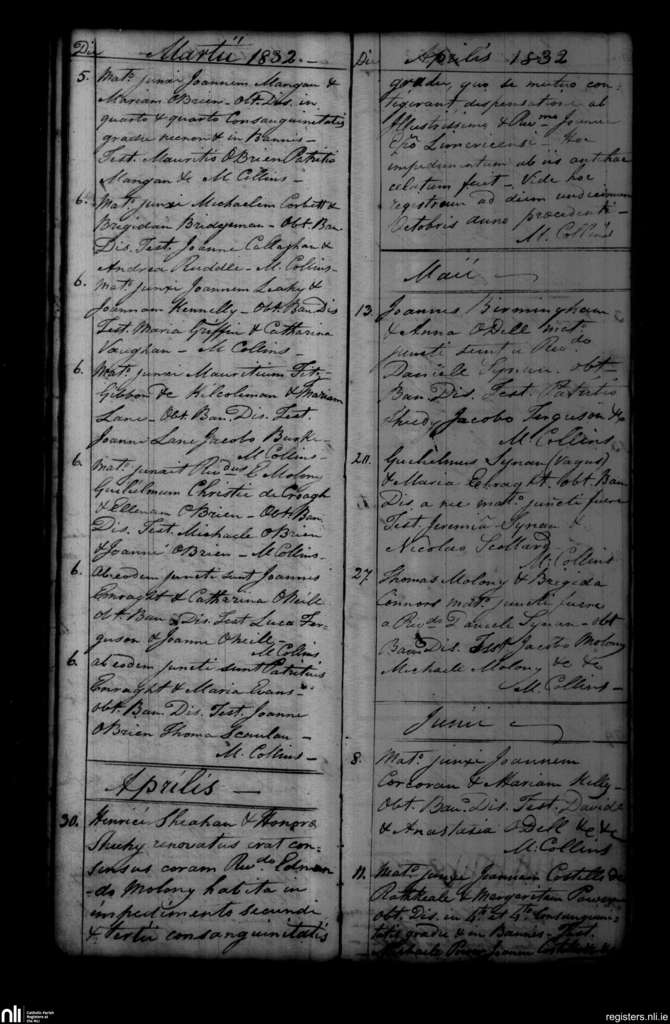 Die Martii 1832. —
5. Mat.º junxi Joannem Mangan &
Mariam OBrien — Obt. Dis. in
quarto & quarto Consanguinitatis
gradu necnon & in Bannis —
Test. Mauritio OBrien Patritio
Mangan &c M Collins —
6. Mat.º junxi Michaelem Corbett &
Brigidam Bridgeman — Obt Ban
Dis. Test. Joanne Callaghan &
Andrea Ruddle — M. Collins —
6. Mat.º junxi Joannem Leahy &
Joannam Kennelly — Obt. Ban Dis
Test. Maria Griffin & Catharina
Vaughan — M Collins —
6. Mat.º junxi Mauritium Fitz-
Gibbon de Kilcoleman & Mariam
Lane — Obt. Ban. Dis. Test.
Joanne Lane Jacobo Burke —
M Collins —
6. Mat.º junxit Rev.dus E Molony
Gulielmum Christie de Croagh
& Ellenam OBrien — Obt. Ban
Dis. Test Michaele OBrien
& Joanne OBrien — M Collins —
6. Ab eodem juncti sunt Joannes
Enraght & Catharina ONeill
obt. Ban. Dis. Test Luca Fer-
guson & Joanne ONeill —
M Collins
6. ab eodem juncti sunt Patritius
Enraght & Maria Evans —
obt. Ban. Dis. Test. Joanne
OBrien Thoma Scanlan —
M. Collins —
Aprilis —
30. Henrici Sheahan & Honora
Sheehy renovatus erat con-
sensus coram Rev.do Edmun-
do Molony habita in
impedimento secundi
& tertii consanguinitatis
Die Aprilis 1832
gradu, quo se mutuo con-
tigerant dispensatione ab
Illustrissimo & Rev.mo Joanne
Epõ Limericensi — Hoc
impedimentum ab iis ant hac
celatum fuit — Vide hoc
registrum ad diem undecimum
Octobris anno precedenti —
M. Collins
Maii —
13. Joannes Birmingham
& Anna ODell mat.º
juncti sunt a Rev.do
Daniele Synan. obt.
Ban. Dis. Test. Patritio
Sheedy Jacobo Ferguson &c
M Collins
20. Gulielmus Synan (Vagus)
& Maria Enraght obt Ban
Dis a me mat.º juncti fuere
Test. Jeremia Synan &
Nicolao Scollard
M. Collins
27. Thomas Molony & Brigida
Connors mat.º juncti fuere
a Rev.do Daniele Synan — obt
Ban. Dis. Test Jacobo Molony
Michaele Molony &c &c
M. Collins —
Junii —
8. Mat.º junxi Joannem
Corcoran & Mariam Kelly —
Obt. Ban. Dis. Test. Davide
& Anastasia ODell &c &c
M. Collins
11. Mat.º junxi Joannem Costello de
Rathkeale & Margaritam Power
obt. Dis. in 4.to et 4.to Consanguini-
tatis gradu & in Bannis — Test.
Michaele Power Joanne Costello &c
nli Catholic Parish
Registers at
the NLI
registers.nli.ie